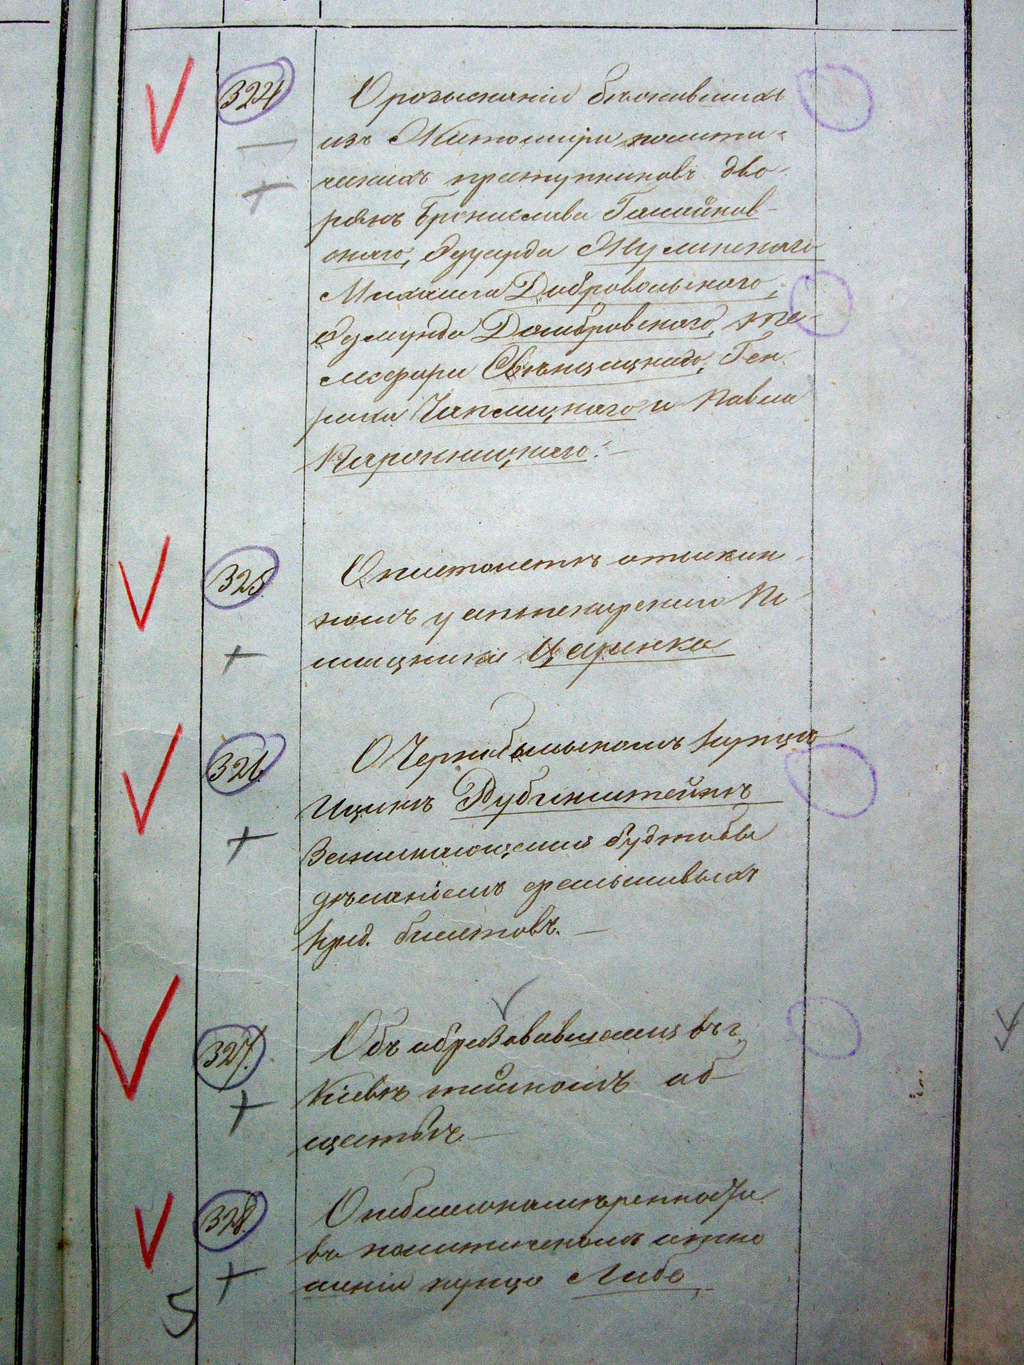 324
О розысканіи бѣжавшихъ
изъ Житоміра полити-
ческихъ преступниковъ дво-
рянъ Бронислава
скаго, Эдуарда Жулинскаго
Михаила Добровольскаго,
Эдмунда Домбровскаго, Те-
лесфора Свѣнцицкаго, Ген-
риха Чаплицкаго и Павла

325
О пистолетѣ отыскан-
номъ у аптекарскаго по-
мощника Царенко
326
О Чернобыльскомъ купцѣ
Ицикѣ Рубинштейнѣ
Занимающемся будтобы
дѣланіемъ фальшивыхъ
кред. билетовъ.
327.
Объ образовавшемся въ г.
Кіевѣ тайномъ об-
ществѣ.
328
О неблагонамѣренности
въ политическомъ отно
шеніи купца Либо
5